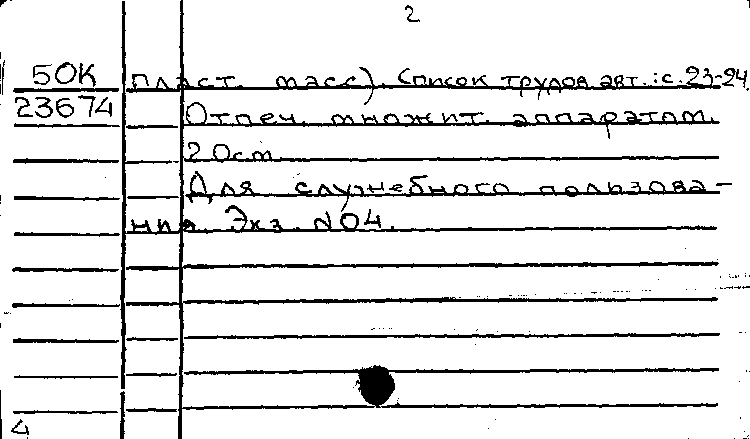 2
50К пласт. масс). Список трудов авт.: с. 23-24
23674 Отпеч. множит. аппаратом.
20см.
Для служебного пользова-
ния. Экз. №04.
4